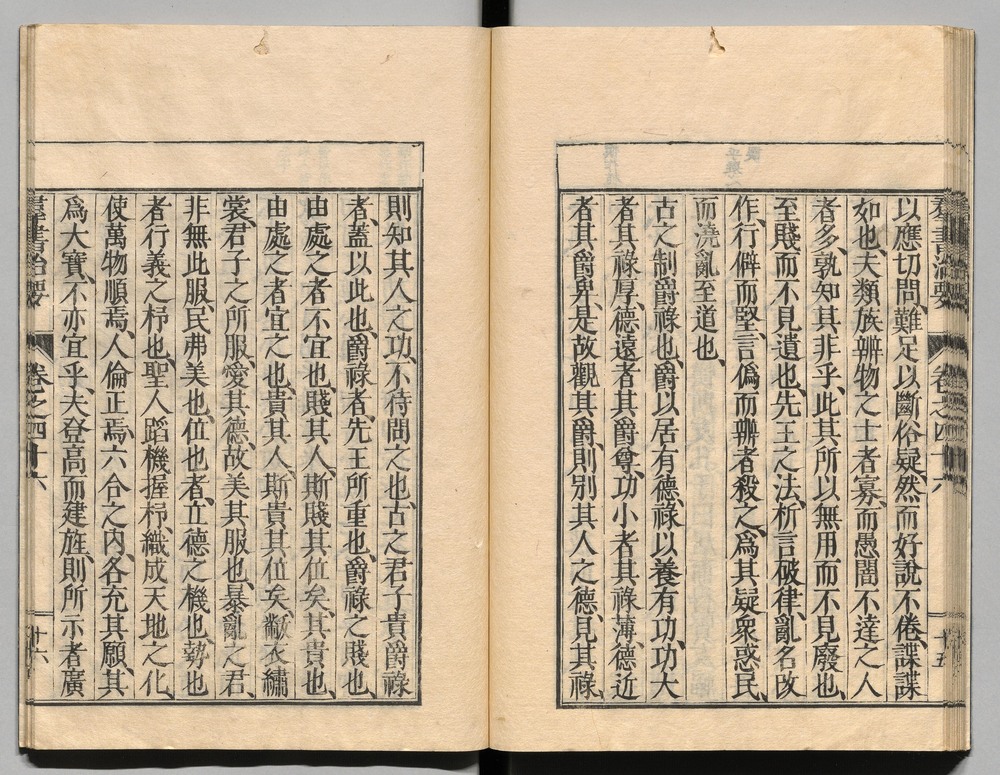 羣書治要 卷之四十六 十五
以應切問、難足以斷俗疑、然而好說不倦、諜諜
如也、夫類族辨物之士者寡、而愚闇不達之人
者多、孰知其非乎、此其所以無用而不見廢也、
至賤而不見遺也、先王之法、析言破律、亂名改
作、行僻而堅、言僞而辨者殺之、爲其疑衆惑民、
而澆亂至道也、
古之制爵祿也、爵以居有德、祿以養有功、功大
者其祿厚、德遠者其爵尊、功小者其祿薄、德近
者其爵卑、是故觀其爵則別其人之德、見其祿、
則知其人之功、不待問之也、古之君子貴爵祿
者、蓋以此也、爵祿者、先王所重也、爵祿之賤也、
由處之者不宜也、賤其人、斯賤其位矣、其貴也、
由處之者宜之也、貴其人、斯貴其位矣、黻衣繡
裳、君子之所服、愛其德、故美其服也、暴亂之君、
非無此服、民弗美也、位也者、立德之機也、勢也
者行義之杼也、聖人蹈機握杼、織成天地之化、
使萬物順焉、人倫正焉、六合之內、各充其願、其
爲大寶、不亦宜乎、夫登高而建旌、則所示者廣
羣書治要 卷之四十六 十六